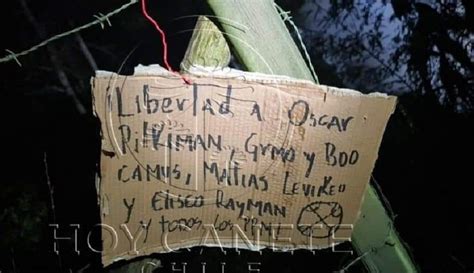 Libertad a Oscar
PilKiMAN, Grmo y BOO
CAMUS, Matias Leviqeo
y Eliseo RAyMAN
y todos los PPM
HOY CAÑETE
CHILE